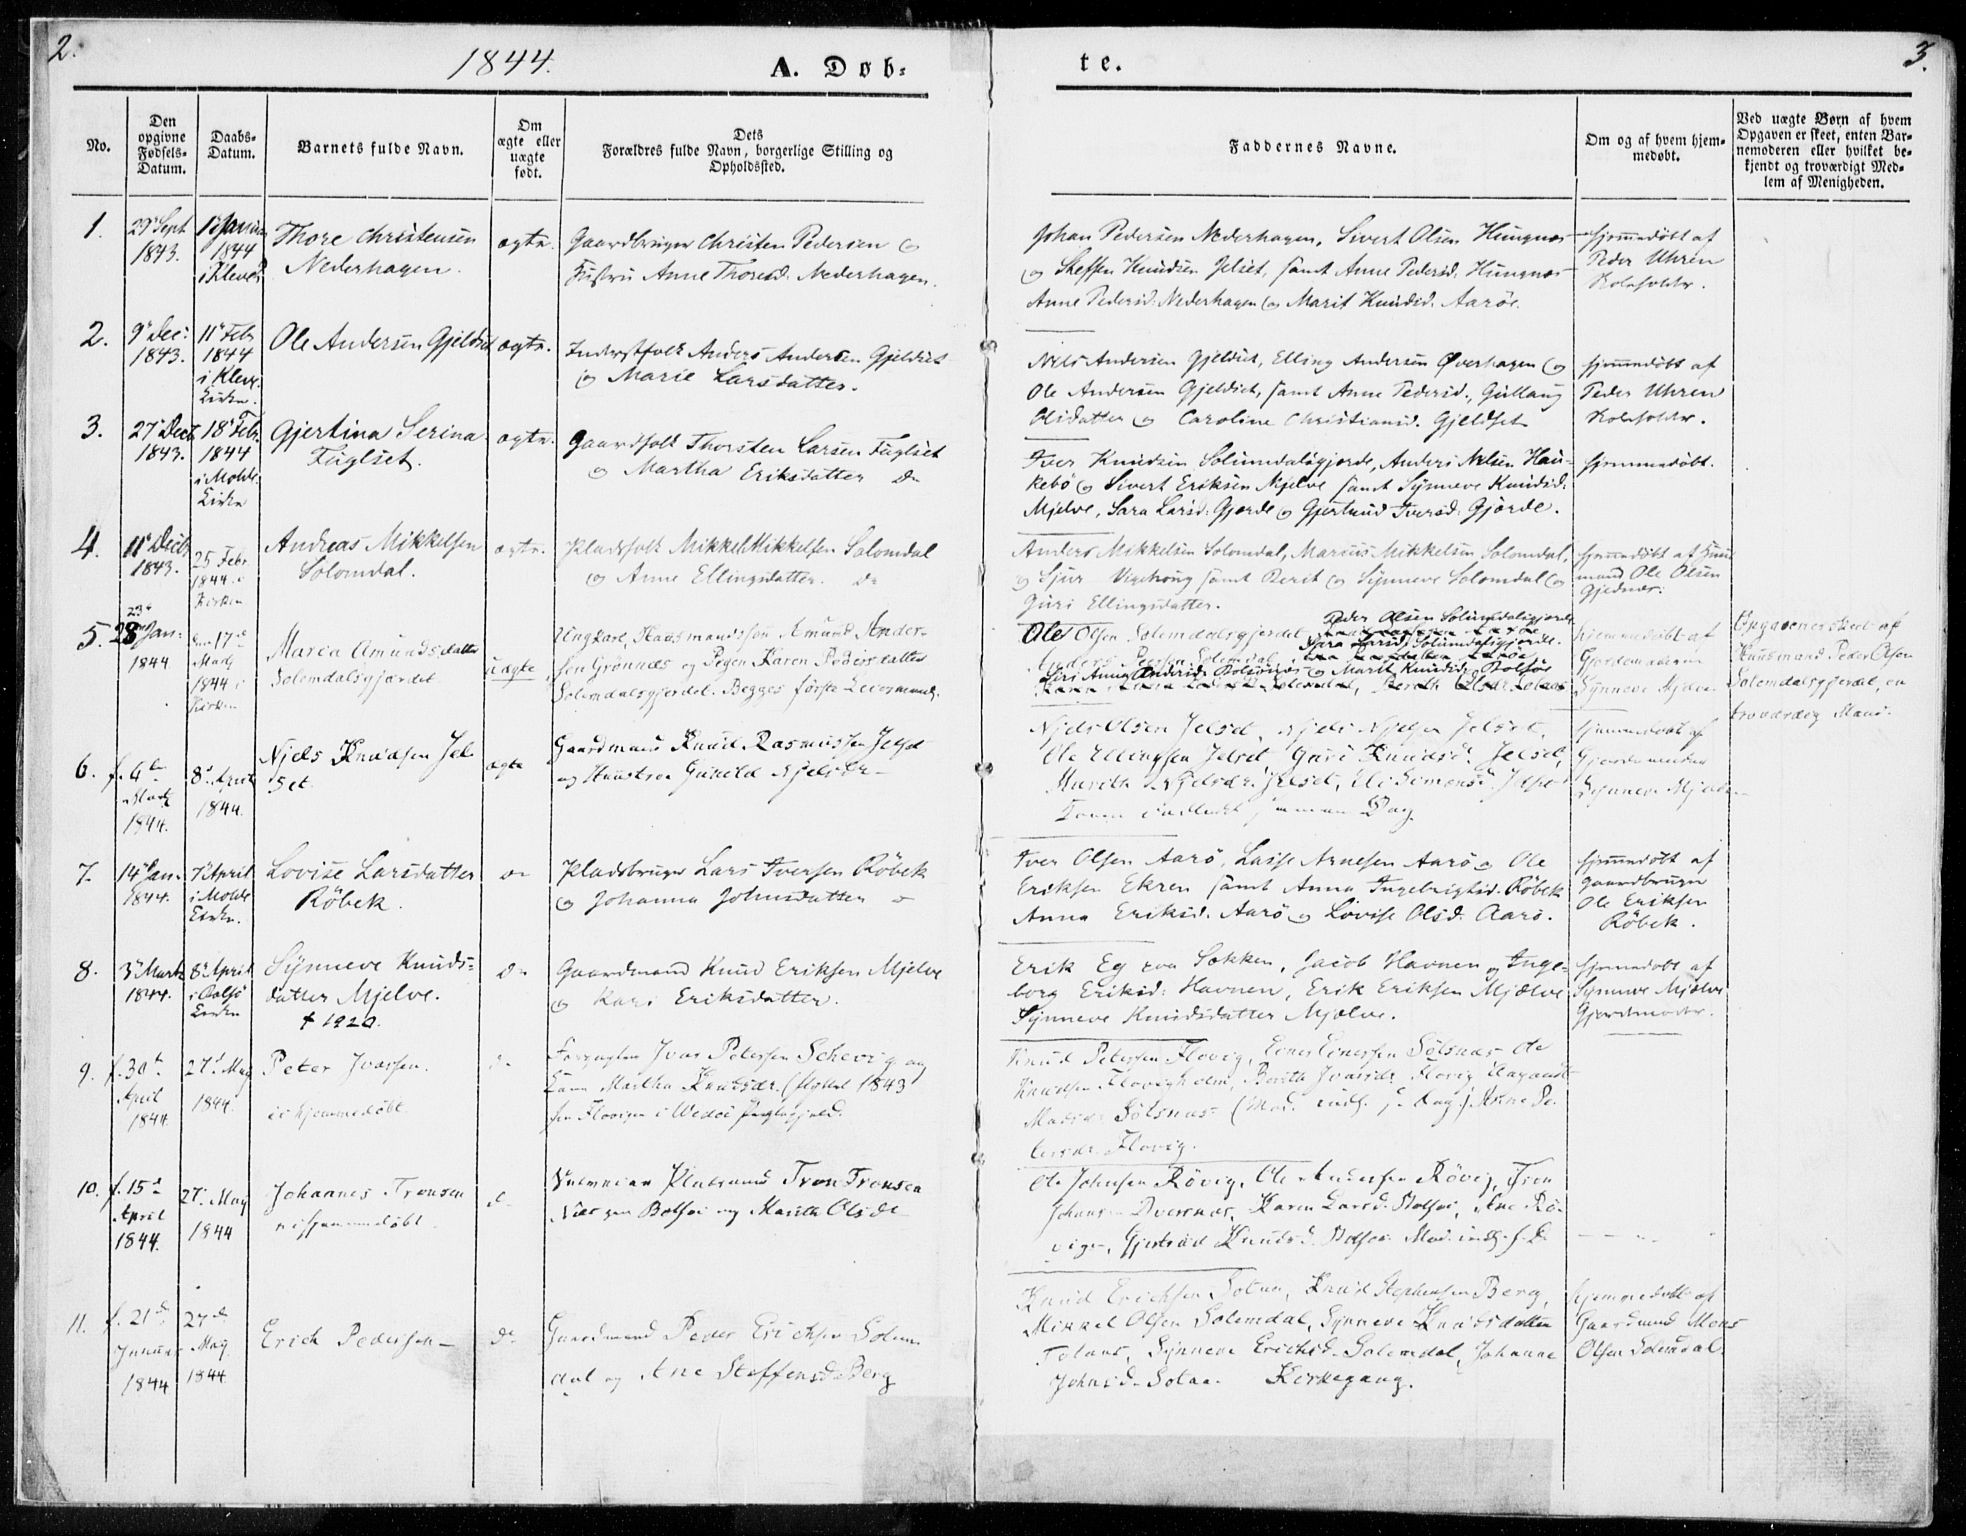 2.
1844.
A. Døb-
te.
3.
No.
Den
opgivne
Fødsels-
Datum.
Daabs-
Datum.
Barnets fulde Navn.
Om
ægte eller
uægte
født.
Dets
Forældres fulde Navn, borgerlige Stilling og
Opholdssted.
Faddernes Navne.
Om og af hvem hjem-
medøbt.
Ved uægte Børn af hvem
Opgaven er skeet, enten Bar-
nemoderen eller hvilket be-
kjendt og troværdigt Med-
lem af Menigheden.
1.
29 Sept
1843.
1844
Thore Christensen
Nederhagen.
ægte.
Gaardbruger Christen Pedersen og
Hustru Anne Thoresd. Nederhagen.
Johan Pedersen Nederhagen, Sivert Olsen Hungnæs
og Steffen Knudsen Jelset, samt Anne Pedersd. Hungnæs
Anne Pedersd. Nederhagen og Marit Knudsd. Aarøe.
hjemmedøbt af
Peder Uhren
2.
9 Dec:
1843.
11 Febr
1844
i Klev.
Kirke.
Ole Andersen Gjeldset
ægte.
Inderstfolk Anders Andersen Gjeldset
og Marie Larsdatter.
Nils Andersen Gjeldset, Elling Andersen Øverhagen og
Ole Andersen Gjeldset, samt Anne Pedersd., Gullaug
Olsdatter og Caroline Christiansd. Gjeldset
hjemmedøbt af
Peder Uhren
3.
27 Decb
1843.
18 Feb.
1844
i Molde
Kirke
Gjertina Serina
Fuglset.
ægte.
Gaardfolk Thorsten Larsen Fuglset
og Martha Eriksdatter do
Iver Knudsen Solumdalsgjerde, Anders Nilsen Hau-
kebø og Sivert Eriksen Mjelve samt Synneve Knudsd:
Mjelve, Sara Larsd: Gjørde og Gjertrud Iversd: Gjørde.
hjemmedøbt.
4.
11 Decb
1843.
25 Febr.
1844 i
Kirken
Andreas Mikkelsen
Solomdal.
ægte.
Pladsfolk Mikkel Mikkelsen Solomdal
og Anne Ellingsdatter. do
Anders Mikkelsen Solomdal, Marius Mikkelsen Solomdal,
og Sjur samt Berit og Synneve Solomdal og
Guri Ellingsdatter.
hjemmedøbt af Huus
mand Ole Olsen
Gjednæs:
5.
23
28 Jan-
1844.
17
Marts
1844 i
Kirken
Maren Amundsdatter
Solemdalsgjerdet
uægte
Ungkarl, Huusmandssøn Amund Ander-
sen Grønnæs og Pigen Karen Pedersdatter
Solemdalsgjerdet. Begges første Leiermaal.
Peder Olsen Solumdalsgjerde
Ole Olsen Solemdalsgjerdet
Sara Larsd. Solumdalsgjerde.
Anders Solemdal
Siri Anna Andersd. Bolsønæs og Marit Knudsd. Bolsøe
hjemmedøbt af
Gjordemoderen
Synneve Mjelve
Opgaven er skeet af
Huusmand Peder Olsen
Solemdalsgjerdet, en
troværdig Mand.
6.
f. 4de
Marts
1844.
8de April
1844.
Njels Knudsen Jel
set.
ægte
Gaardmand Knud Rasmussen Jelset
og Hustrue Gunild Njelsdr-
Njels Olsen Jelset, Njels Njelsen Jelset,
Ole Ellingsen Jelset, Guri Knudsd. Jelset,
Marith Njelsdr. Jelset, Eli Simonsd. Jelset
Konen indledet samme Dag
hjemmedøbt af
Gjordemoder
Synneve Mjelve
7.
14 Jan-
1844.
7 April
i Molde
Kirke.
Lovise Larsdatter
Røbek.
do
Pladsbruger Lars Iversen Røbek
og Johanna Johnsdatter do
Iver Olsen Aarø, Lasse Arnesen Aarø og Ole
Eriksen Ekren samt Anna Ingebrigtsd. Røbek
Anna Eriksd. Aarø og Lovise Olsd. Aarø.
hjemmedøbt af
Gaardbruger
Ole Eriksen
Røbek.
8.
3 Marts
1844.
8 April
i Bolsø
Kirke
Synneve Knuds-
datter Mjelve.
† 1920.
do
Gaardmand Knud Eriksen Mjelve
og Kari Eriksdatter.
Erik Eg paa Sekken, Jacob Havnen og Inge-
borg Eriksd: Havnen, Erik Eriksen Mjelve
Synneve Knudsdatter Mjelve.
hjemmedøbt af
Synneve Mjelve
Gjordmoder.
9.
f. 30te
April
1844.
27d May
1844.
Peter Ivarsen.
ei hjemmedøbt.
do
Ivar Petersen og
Kone Martha Knudsdr. 1843
Knud Petersen Flovig, Sølsnæs, Ole
Knudsen Flovigholm, Berith Ivarsdr. Flovig
Madsdr. Sølsnæs- (Mod. indl. s. Dag) Anne Pe-
tersdr. Flovig.
10.
f. 15d
April
1844.
27d May
1844
Johannes Tronsen
ei hjemmedøbt.
do
Pladsmand Tron Tronsen
Bolsøe og Marith Olsdr
Ole Johnsen Røvig, Ole Andersen Røvig,
Karen Larsd. Bolsøe, Ane Rø-
vigen, Gjertrud Knudsd. Bolsøe. Mod. indl. s. D.
11.
f. 21de
Januar
1844
27de
May
1844
Erich Pedersen-
do
Gaardmand Peder Erichsen Solem
dal og Ane Steffensd. Berg
Knud Erichsen Solem, Knud Stephensen Berg,
Mikkel Olsen Solemdal, Synneve Knudsdatter
Synneve Erichsd. Solemdal, Johanne
Johnsd. Kirkegang.
hjemmedøbt af
Gaardmand Mons
Olsen Solemdal.